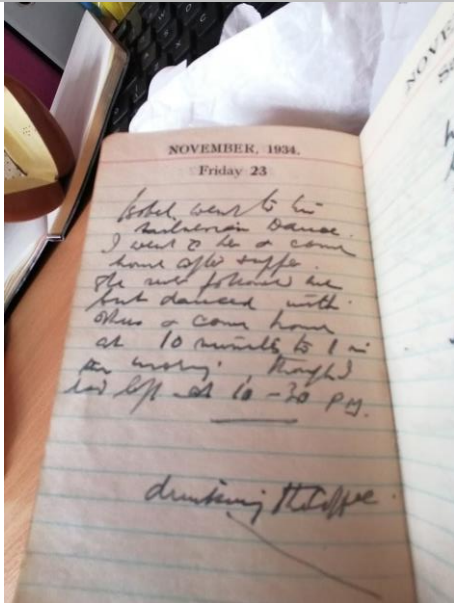 NOVEMBER, 1934.
Friday 23
Isobel went to
Dance.
I went to & came
home after supper.
She never followed me
but danced with
others & came home
at 10 minutes to 1 in
the morning. thought
had left at 10-30 P.M.
drinking Coffee.
NOVE